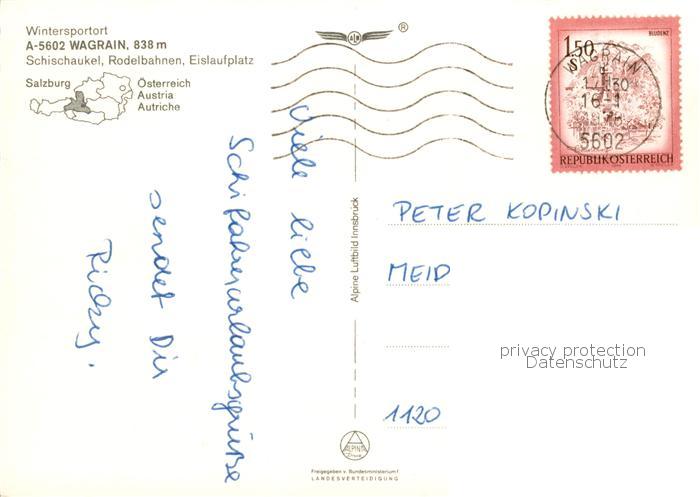 Wintersportort
A-5602 WAGRAIN, 838 m
Schischaukel, Rodelbahnen, Eislaufplatz
Salzburg
Österreich
Austria
Autriche
®
BLUDENZ
1.50
S
REPUBLIK ÖSTERREICH
WAGRAIN
16-1
5602
Viele liebe
Schifahrerurlaubsgrüße
sendet Dir
Alpine Luftbild Innsbruck
PETER KOPINSKI
MEID
1120
privacy protection
Datenschutz
ALPINA
Druck
Freigegeben v. Bundesministerium f.
LANDESVERTEIDIGUNG